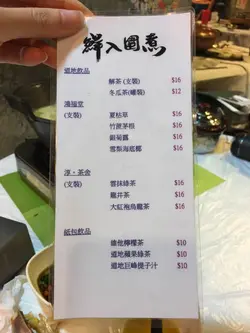 鮮入圍煮
道地飲品
解茶 (支裝) $16
冬瓜茶(罐裝) $12
鴻福堂
(支裝) 夏枯草 $16
竹蔗茅根 $16
銀菊露 $16
雪梨海底椰 $16
淳・茶舍
(支裝) 雪抹綠茶 $16
龍井茶 $16
大紅袍烏龍茶 $16
紙包飲品
維他檸檬茶 $10
道地蘋果綠茶 $10
道地巨峰提子汁 $10